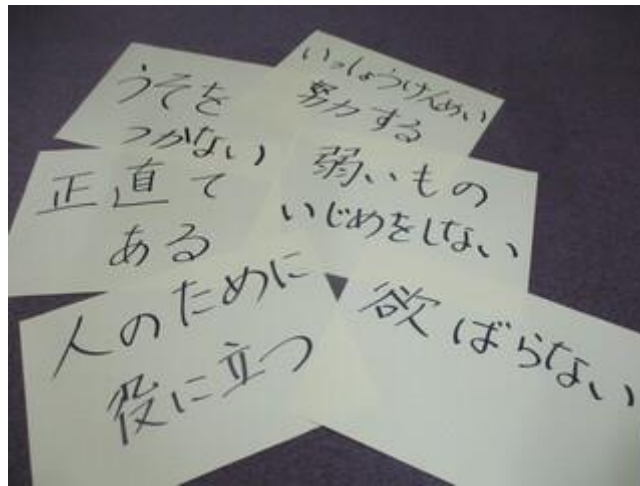 うそを
つかない
いっしょうけんめい
努力する
正直で
ある
弱いもの
いじめをしない
人のために
役に立つ
欲ばらない